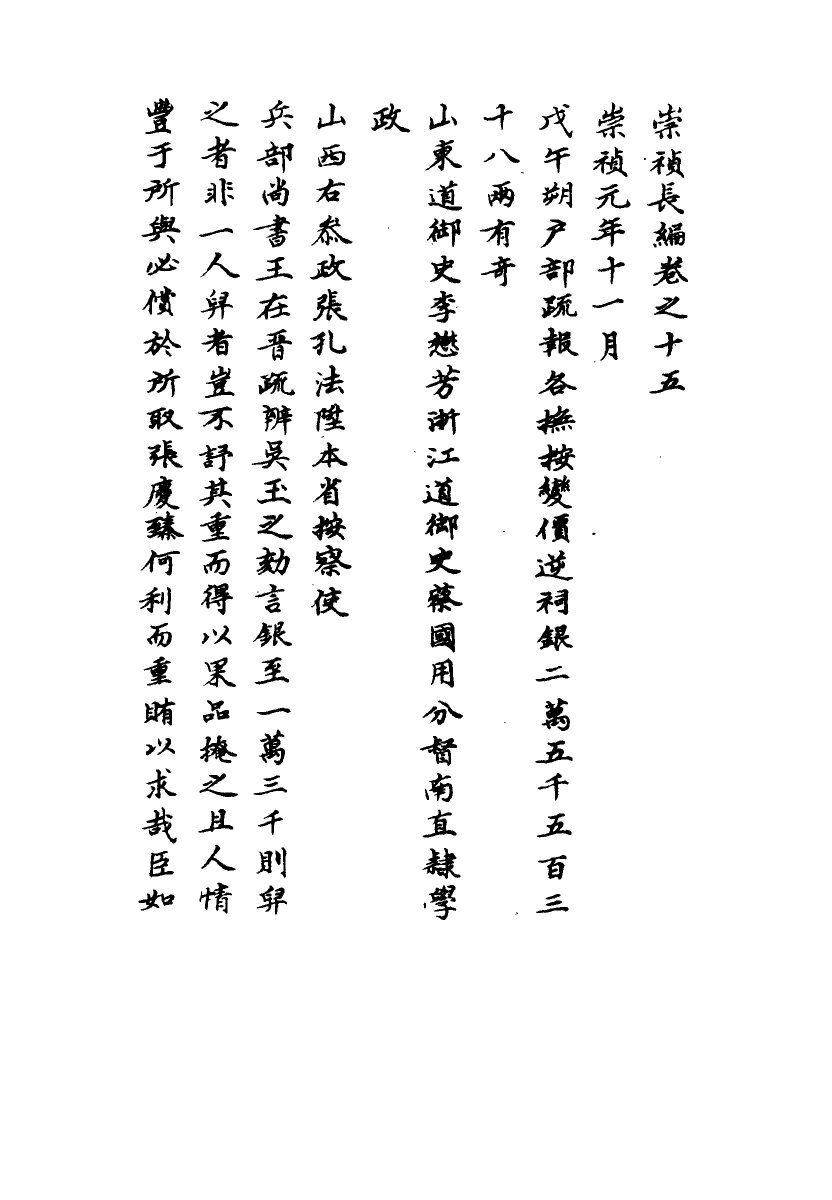 崇禎長編卷之十五
崇禎元年十一月
戊午朔戶部疏報各撫按變價逆祠銀二萬五千五百三
十八兩有奇
山東道御史李懋芳浙江道御史蔡國用分督南直隸學
政
山西右叅政張孔法陞本省按察使
兵部尚書王在晋疏辨吳玉之劾言銀至一萬三千則舁
之者非一人舁者豈不訝其重而得以果品掩之且人情
豐于所與必償於所取張慶臻何利而重賄以求哉臣如